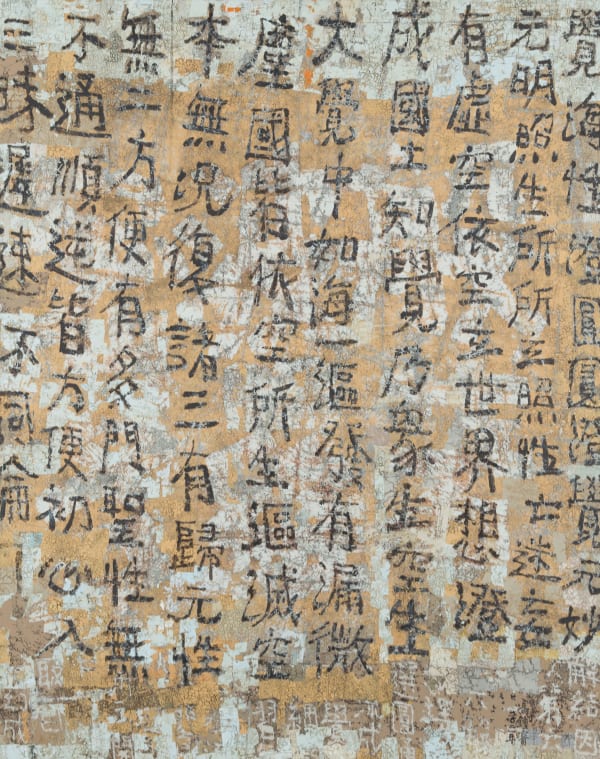 覺海性澄圓圓澄覺元妙
元明照生所所立照性亡迷妄
有虛空依空立世界想澄
成國土知覺乃衆生空生
大覺中如海一漚發有漏微
塵國皆依空所生漚滅空
本無況復諸三有歸元性
無二方便有多門聖性無
不通順逆皆方便初心入
三昧遲速不同倫
解結因
第六
選圓